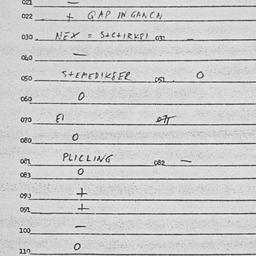 021 —
022 + GAP IN GANCN
030 NEX = S+C+IRKEI 031 —
040 —
050 S+EMEDIKSER 051. O
060 O
070 EI
080 O
081 PLICLING 082 —
083 O
+
+
100 —
110 O